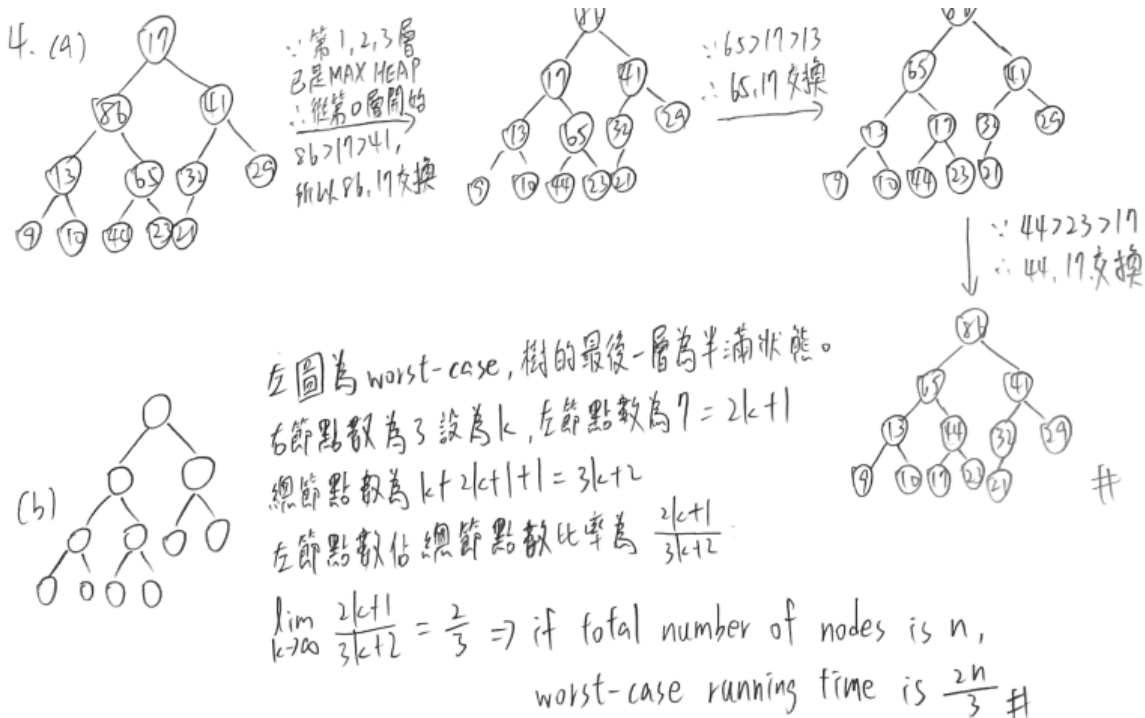 4. (a)
17
86 41
13 65 32 29
9 10 44 23 21
∵第1,2,3層
已是MAX HEAP
∴從第0層開始
86>17>41,
所以86,17交換
86
17 41
13 65 32 29
9 10 44 23 21
∵65>17>13
∴65,17交換
65 41
13 17 32 29
9 10 44 23 21
∵44>23>17
∴44,17交換
86
65 41
13 44 32 29
9 10 17 23 21
#
(b)
左圖為worst-case,樹的最後一層為半滿狀態。
右節點數為3設為k,左節點數為7=2k+1
總節點數為k+2k+1+1=3k+2
左節點數佔總節點數比率為 2k+1/3k+2
lim k→∞ 2k+1/3k+2 = 2/3 => if total number of nodes is n,
worst-case running time is 2n/3 #